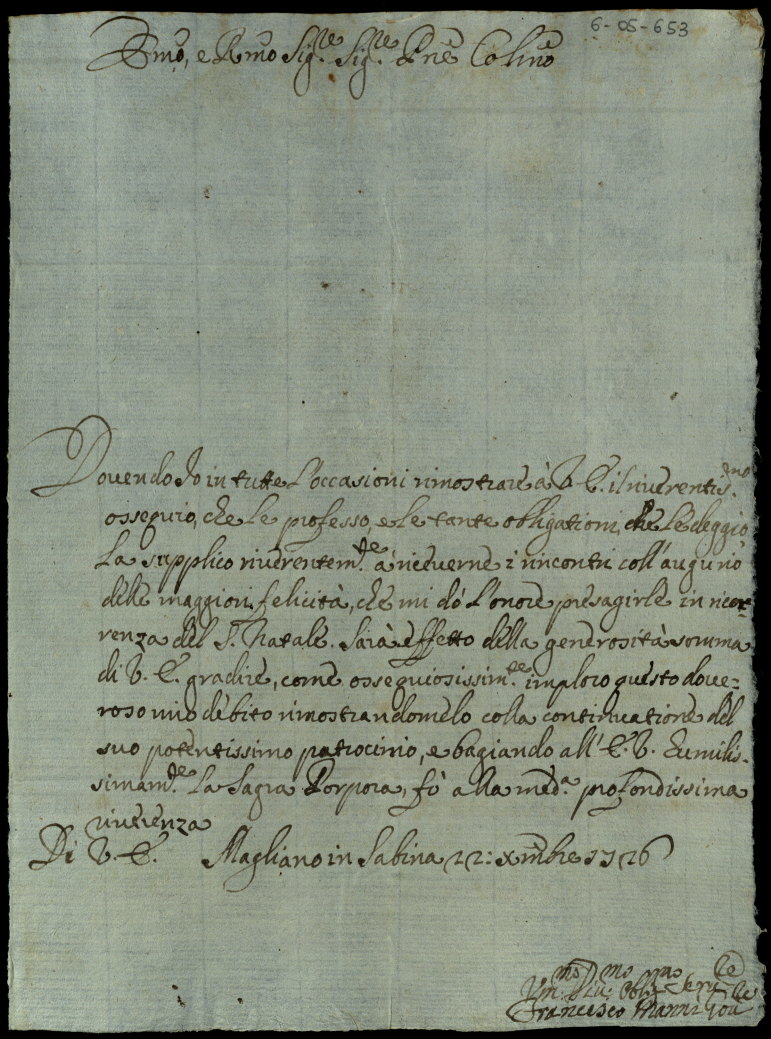 6-05-653
Emo, e Rmo Sig.re Sig.re Pne Colmo
Dovendo Io in tutte l'occasioni rimostrare à V. E. il riverentis.mo
ossequio, che Le professo, e le tante obligationi, che Le deggio
La supplico riverentem.te a riceverne i rincontri coll'augurio
delle maggiori felicità, che mi dò l'onore presagirle in ricor-
renza del S. Natale. Sarà effetto della generosità somma
di V. E. gradire, come ossequiosissim.te imploro questo dove=
roso mio debito rimostrandomelo colla continuatione del
suo potentissimo patrocinio, e bagiando all'E. V. Humilis-
simam.te La Sagra Porpora, fò alla med.a profondissima
riverenza
Di V. E. Magliano in Sabina 22: Xmbre 1726
Um.mo Div.mo Obb.mo Serv.re
Francesco Manni Gov.re